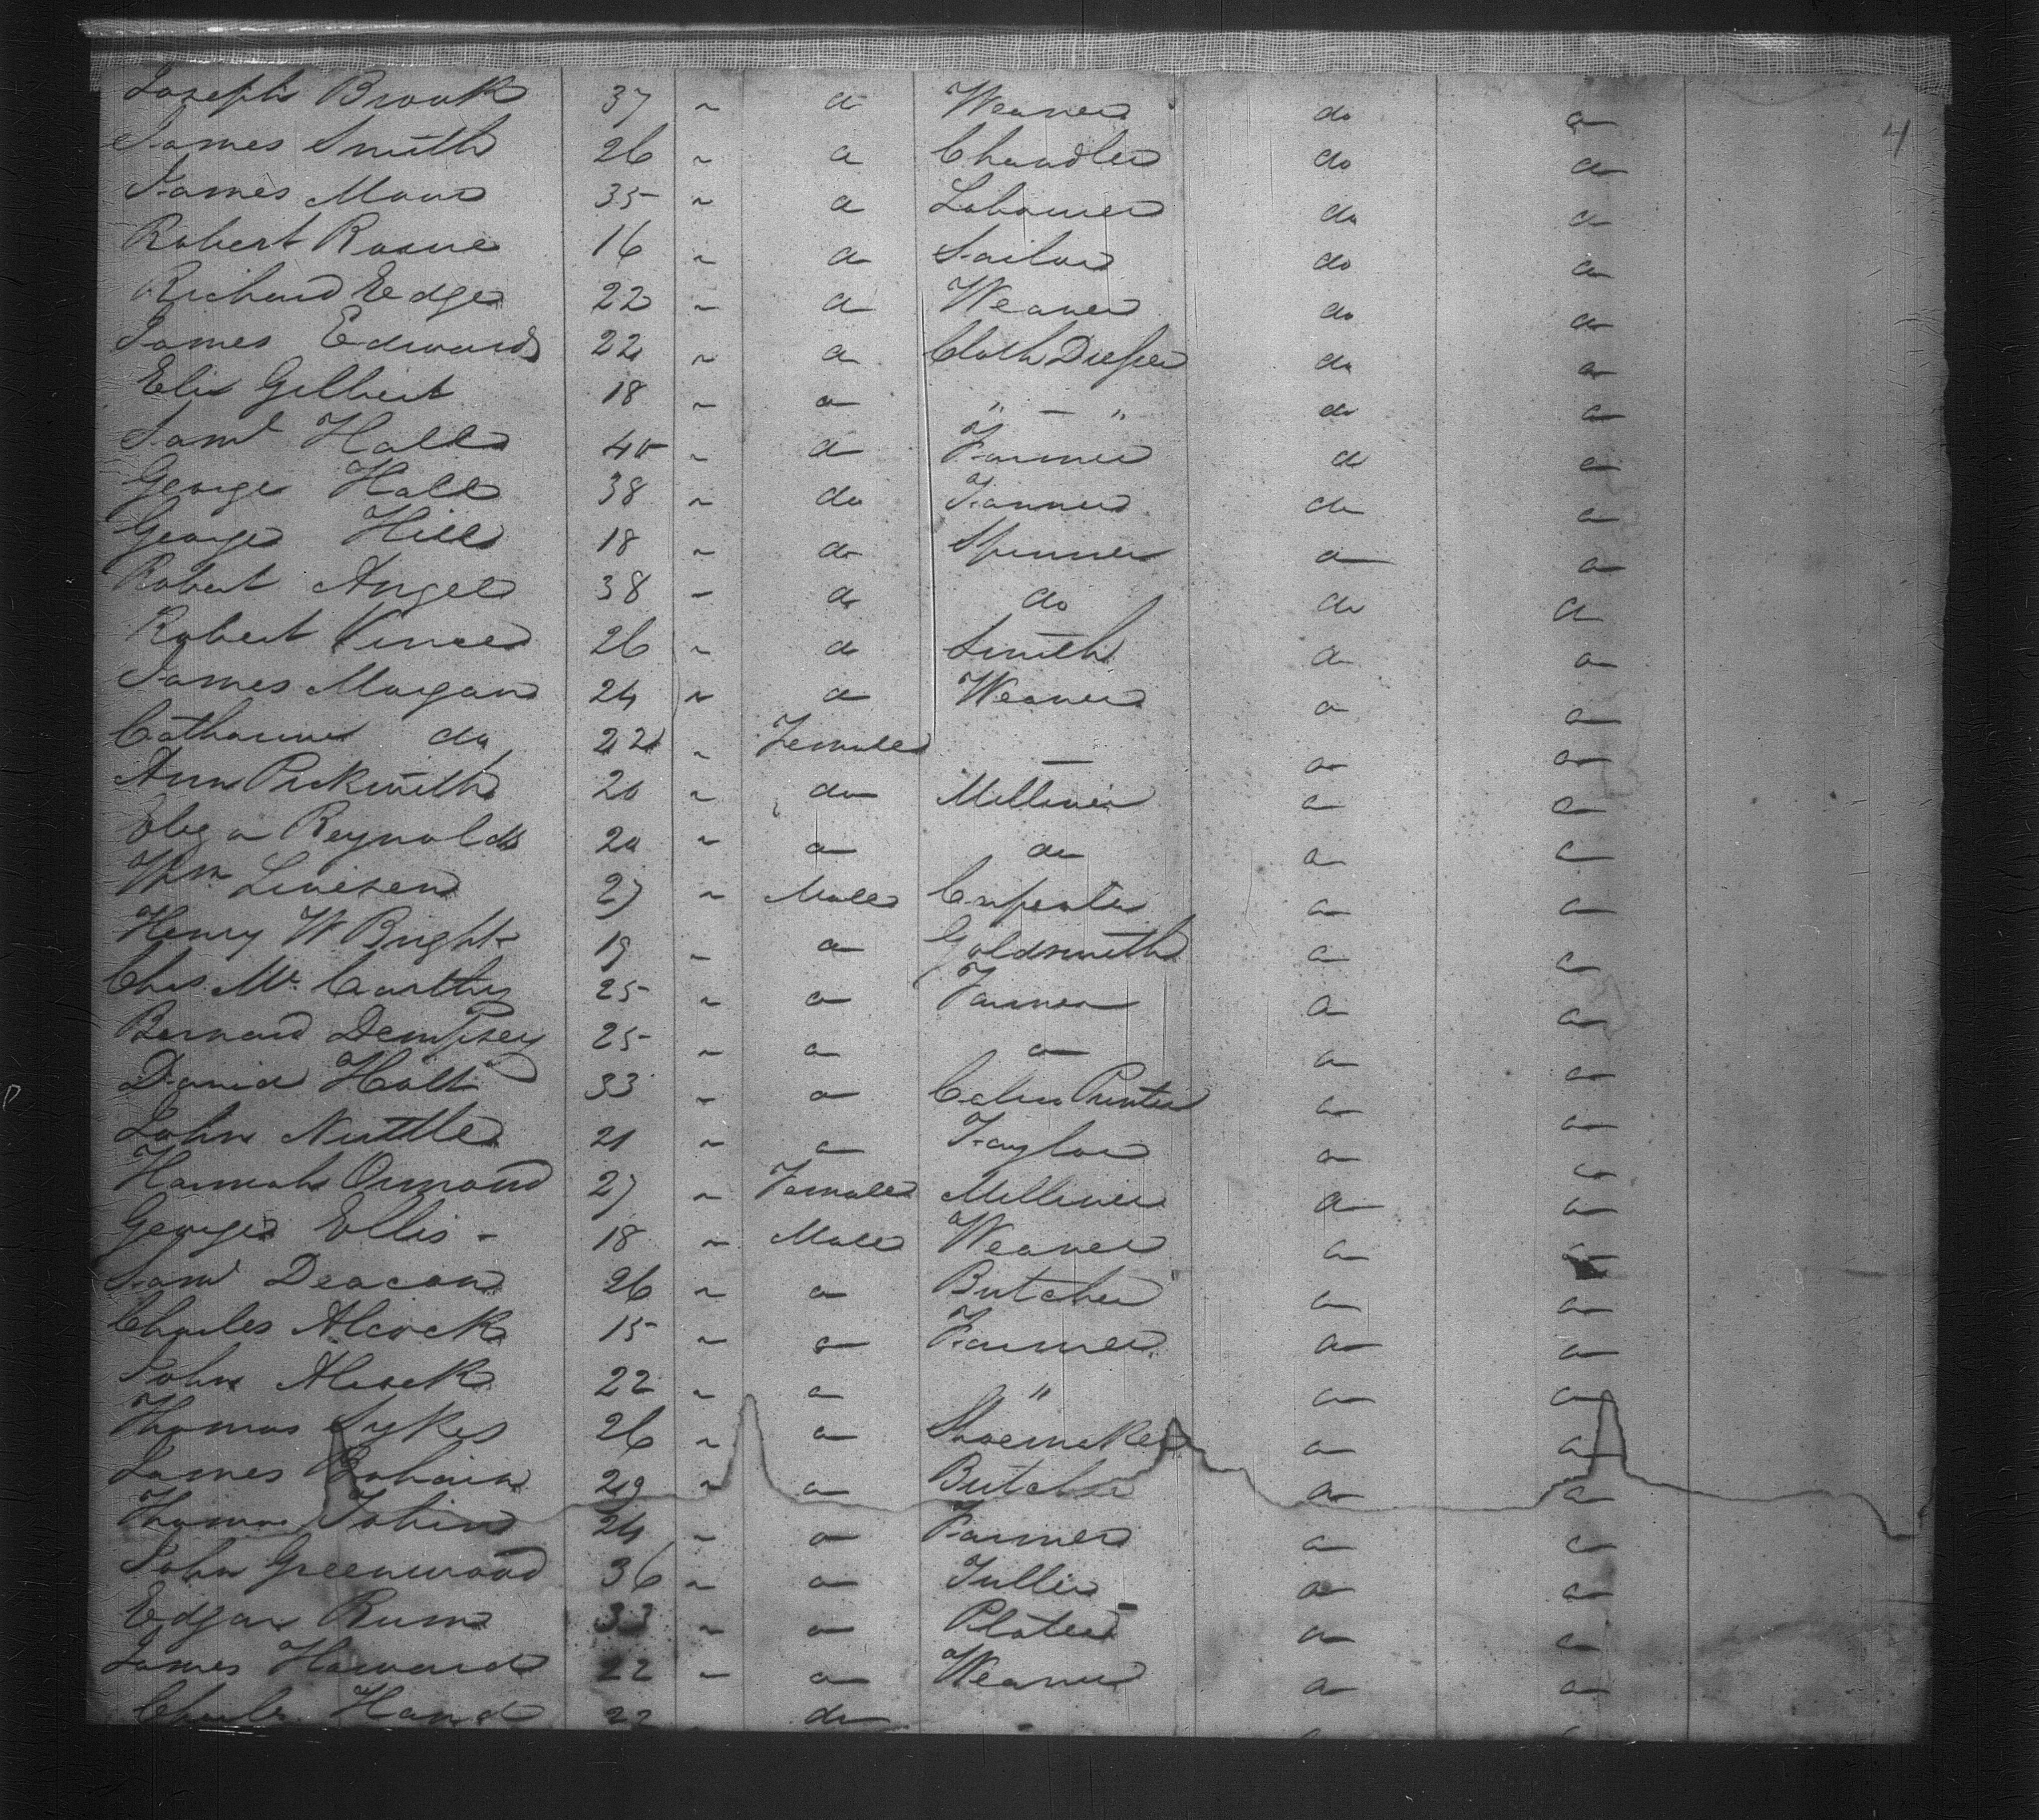 4
Joseph Brook 37 " do Weaver do do
James Smith 26 " do Chandler do do
James Moore 35 " do Labourer do do
Robert 16 " do Sailor do do
Richard Edge 22 " do Weaver do do
James Edwards 22 " do Cloth Dresser do do
Eli Gilbert 18 " do " — " do do
Saml Hall 40 " do Farmer do do
George Hall 38 " do Farmer do do
George Hill 18 " do Spinner do do
Robert Angel 38 " do do do do
Robert Vince 26 " do Smith do do
James Morgan 24 " do Weaver do do
Catharine do 22 " Female — do do
Ann Pickwith 20 " do Milliner do do
Eliza Reynolds 20 " do do do do
Wm 27 " Male Carpenter do do
Henry W Bright 19 " do Goldsmith do do
Chas Mc Carthy 25 " do Farmer do do
Bernard Dempsey 25 " do do do do
David Holt 33 " do Calico Printer do do
John Nuttle 21 " do Taylor do do
Hannah Ormond 27 " Female Milliner do do
George Ellis - 18 " Male Weaver do do
Saml Deacon 26 " do Butcher do do
Charles Alcock 15 " do Farmer do do
John Alcock 22 " do " do do
Thomas Sykes 26 " do Shoemaker do do
James 29 " do Butcher do do
Thomas Tobin 24 " do Farmer do do
John Greenwood 36 " do Fuller do do
Edgar 33 " do Plater do do
James Haward 22 " do Weaver do do
Charles Hand 22 do